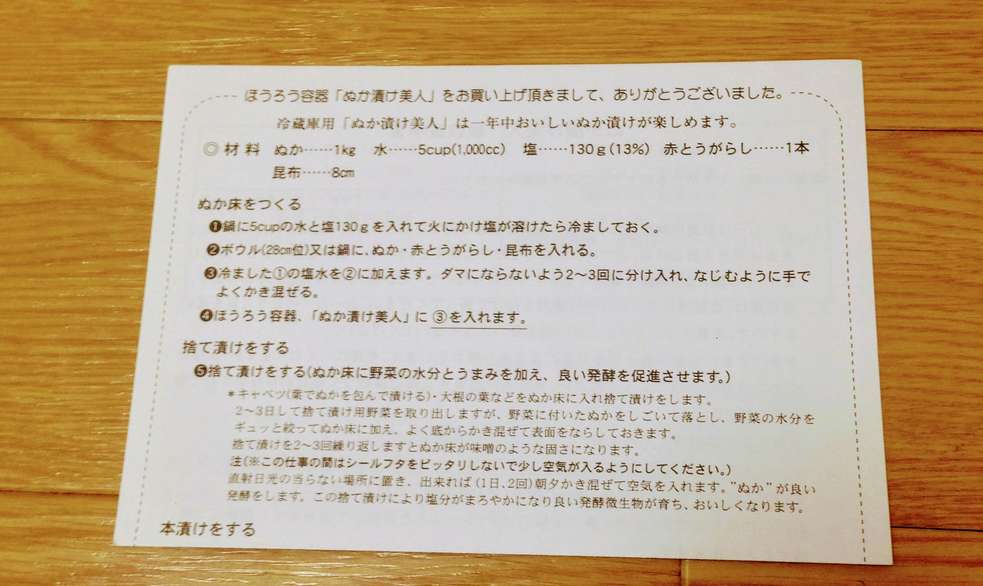 ほうろう容器「ぬか漬け美人」をお買い上げ頂きまして、ありがとうございました。
冷蔵庫用「ぬか漬け美人」は一年中おいしいぬか漬けが楽しめます。
◎材料 ぬか……1kg 水……5cup(1,000cc) 塩……130g(13%) 赤とうがらし……1本
昆布……8cm
ぬか床をつくる
❶鍋に5cupの水と塩130gを入れて火にかけ塩が溶けたら冷ましておく。
❷ボウル(28cm位)又は鍋に、ぬか・赤とうがらし・昆布を入れる。
❸冷ました①の塩水を②に加えます。ダマにならないよう2〜3回に分け入れ、なじむように手で
よくかき混ぜる。
❹ほうろう容器、「ぬか漬け美人」に③を入れます。
捨て漬けをする
❺捨て漬けをする(ぬか床に野菜の水分とうまみを加え、良い発酵を促進させます。)
*キャベツ(葉でぬかを包んで漬ける)・大根の葉などをぬか床に入れ捨て漬けをします。
2〜3日して捨て漬け用野菜を取り出しますが、野菜に付いたぬかをしごいて落とし、野菜の水分を
ギュッと絞ってぬか床に加え、よく底からかき混ぜて表面をならしておきます。
捨て漬けを2〜3回繰り返しますとぬか床が味噌のような固さになります。
注(※この仕事の間はシールフタをピッタリしないで少し空気が入るようにしてください。)
直射日光の当らない場所に置き、出来れば(1日、2回)朝夕かき混ぜて空気を入れます。"ぬか"が良い
発酵をします。この捨て漬けにより塩分がまろやかになり良い発酵微生物が育ち、おいしくなります。
本漬けをする